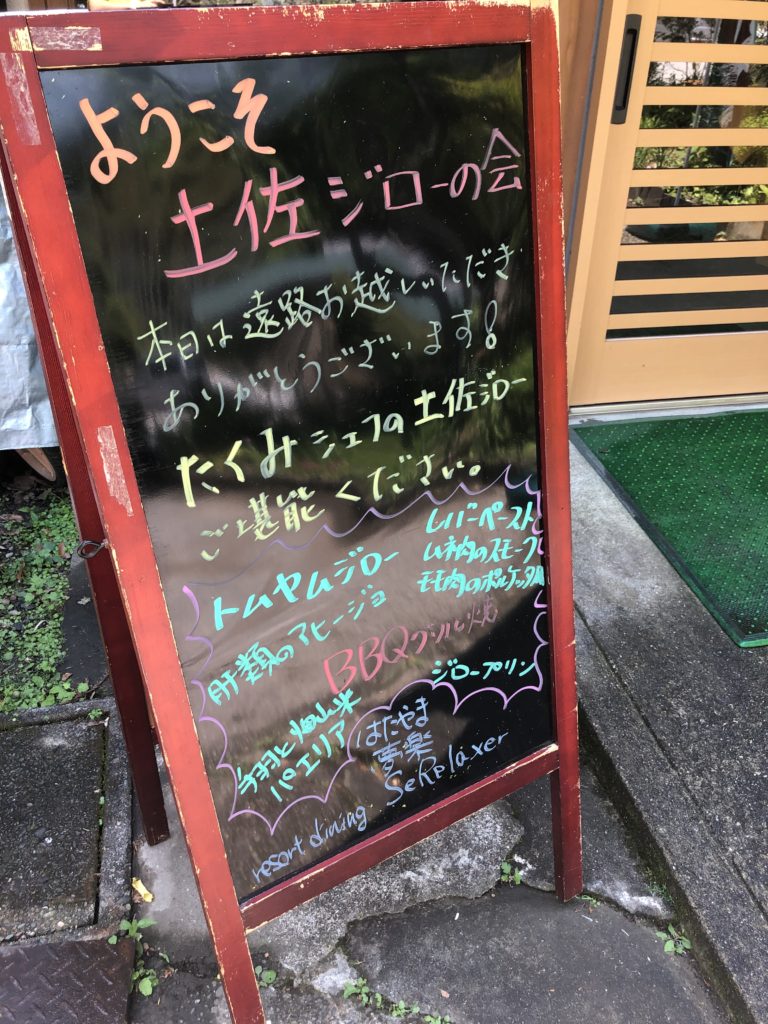 ようこそ
土佐ジローの会
本日は遠路お越しいただき
ありがとうございます!
たくみシェフの土佐ジロー
ご堪能ください。
トムヤムジロー
肝類のアヒージョ
レバーペースト
ムネ肉のスモーク
モモ肉のポルケッタ
BBQグリル焼
ジロープリン
手羽と畑山米
パエリア
はたやま
夢楽
resort dining SeRelaxer